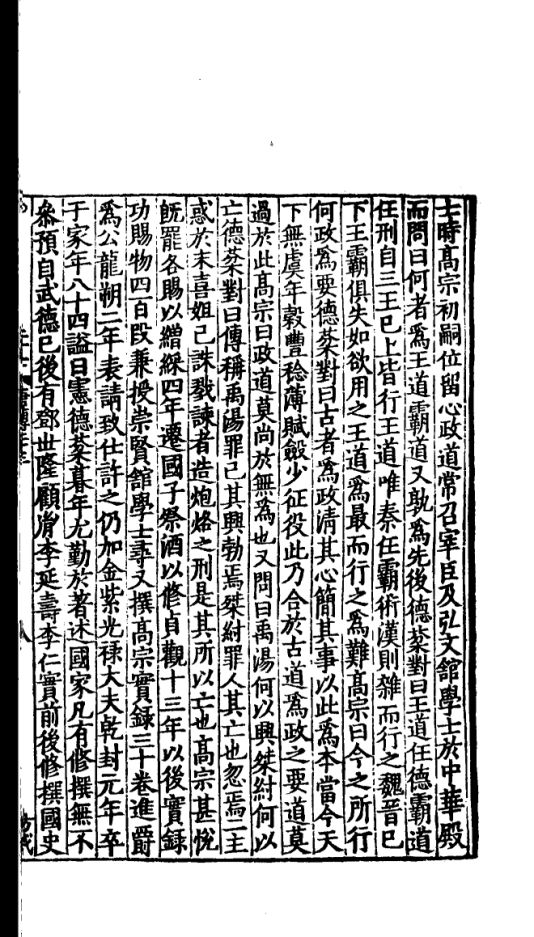 士時髙宗初嗣位留心政道常召宰臣及弘文舘學士於中華殿
而問曰何者爲王道霸道又孰爲先後德棻對曰王道任德霸道
任刑自三王已上皆行王道唯秦任霸術漢則雜而行之魏晉已
下王霸俱失如欲用之王道爲最而行之爲難髙宗曰今之所行
何政爲要德棻對曰古者爲政清其心簡其事以此爲本當今天
下無虞年穀豐稔薄賦斂少征役此乃合於古道爲政之要道莫
過於此髙宗曰政道莫尚於無爲也又問曰禹湯何以興桀紂何以
亡德棻對曰傳稱禹湯罪己其興勃焉桀紂罪人其亡也忽焉二主
惑於末喜妲己誅戮諫者造炮烙之刑是其所以亡也髙宗甚悅
旣罷各賜以繒綵四年遷國子祭酒以修貞觀十三年以後實録
功賜物四百段兼授崇賢舘學士尋又撰髙宗實録三十卷進爵
爲公龍朔二年表請致仕許之仍加金紫光禄大夫乾封元年卒
于家年八十四謚曰憲德棻暮年尤勤於著述國家凡有修撰無不
叅預自武德已後有鄧世隆顧胤李延壽李仁實前後修撰國史